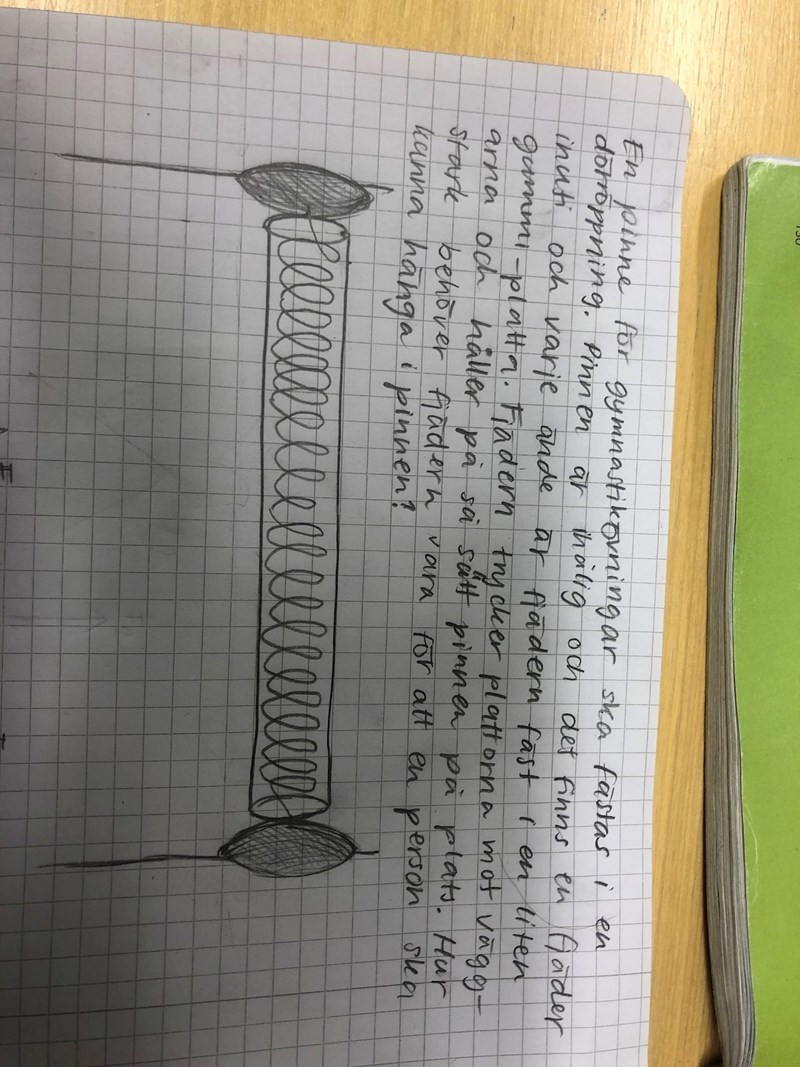 En pinne för gymnastikövningar ska fästas i en
dörröppning. Pinnen är ihålig och det finns en fjäder
inuti och varje ände är fjädern fäst i en liten
gummi-platta. Fjädern trycker plattorna mot vägg-
arna och håller på så sätt pinnen på plats. Hur
stark behöver fjädern vara för att en person ska
kunna hänga i pinnen?